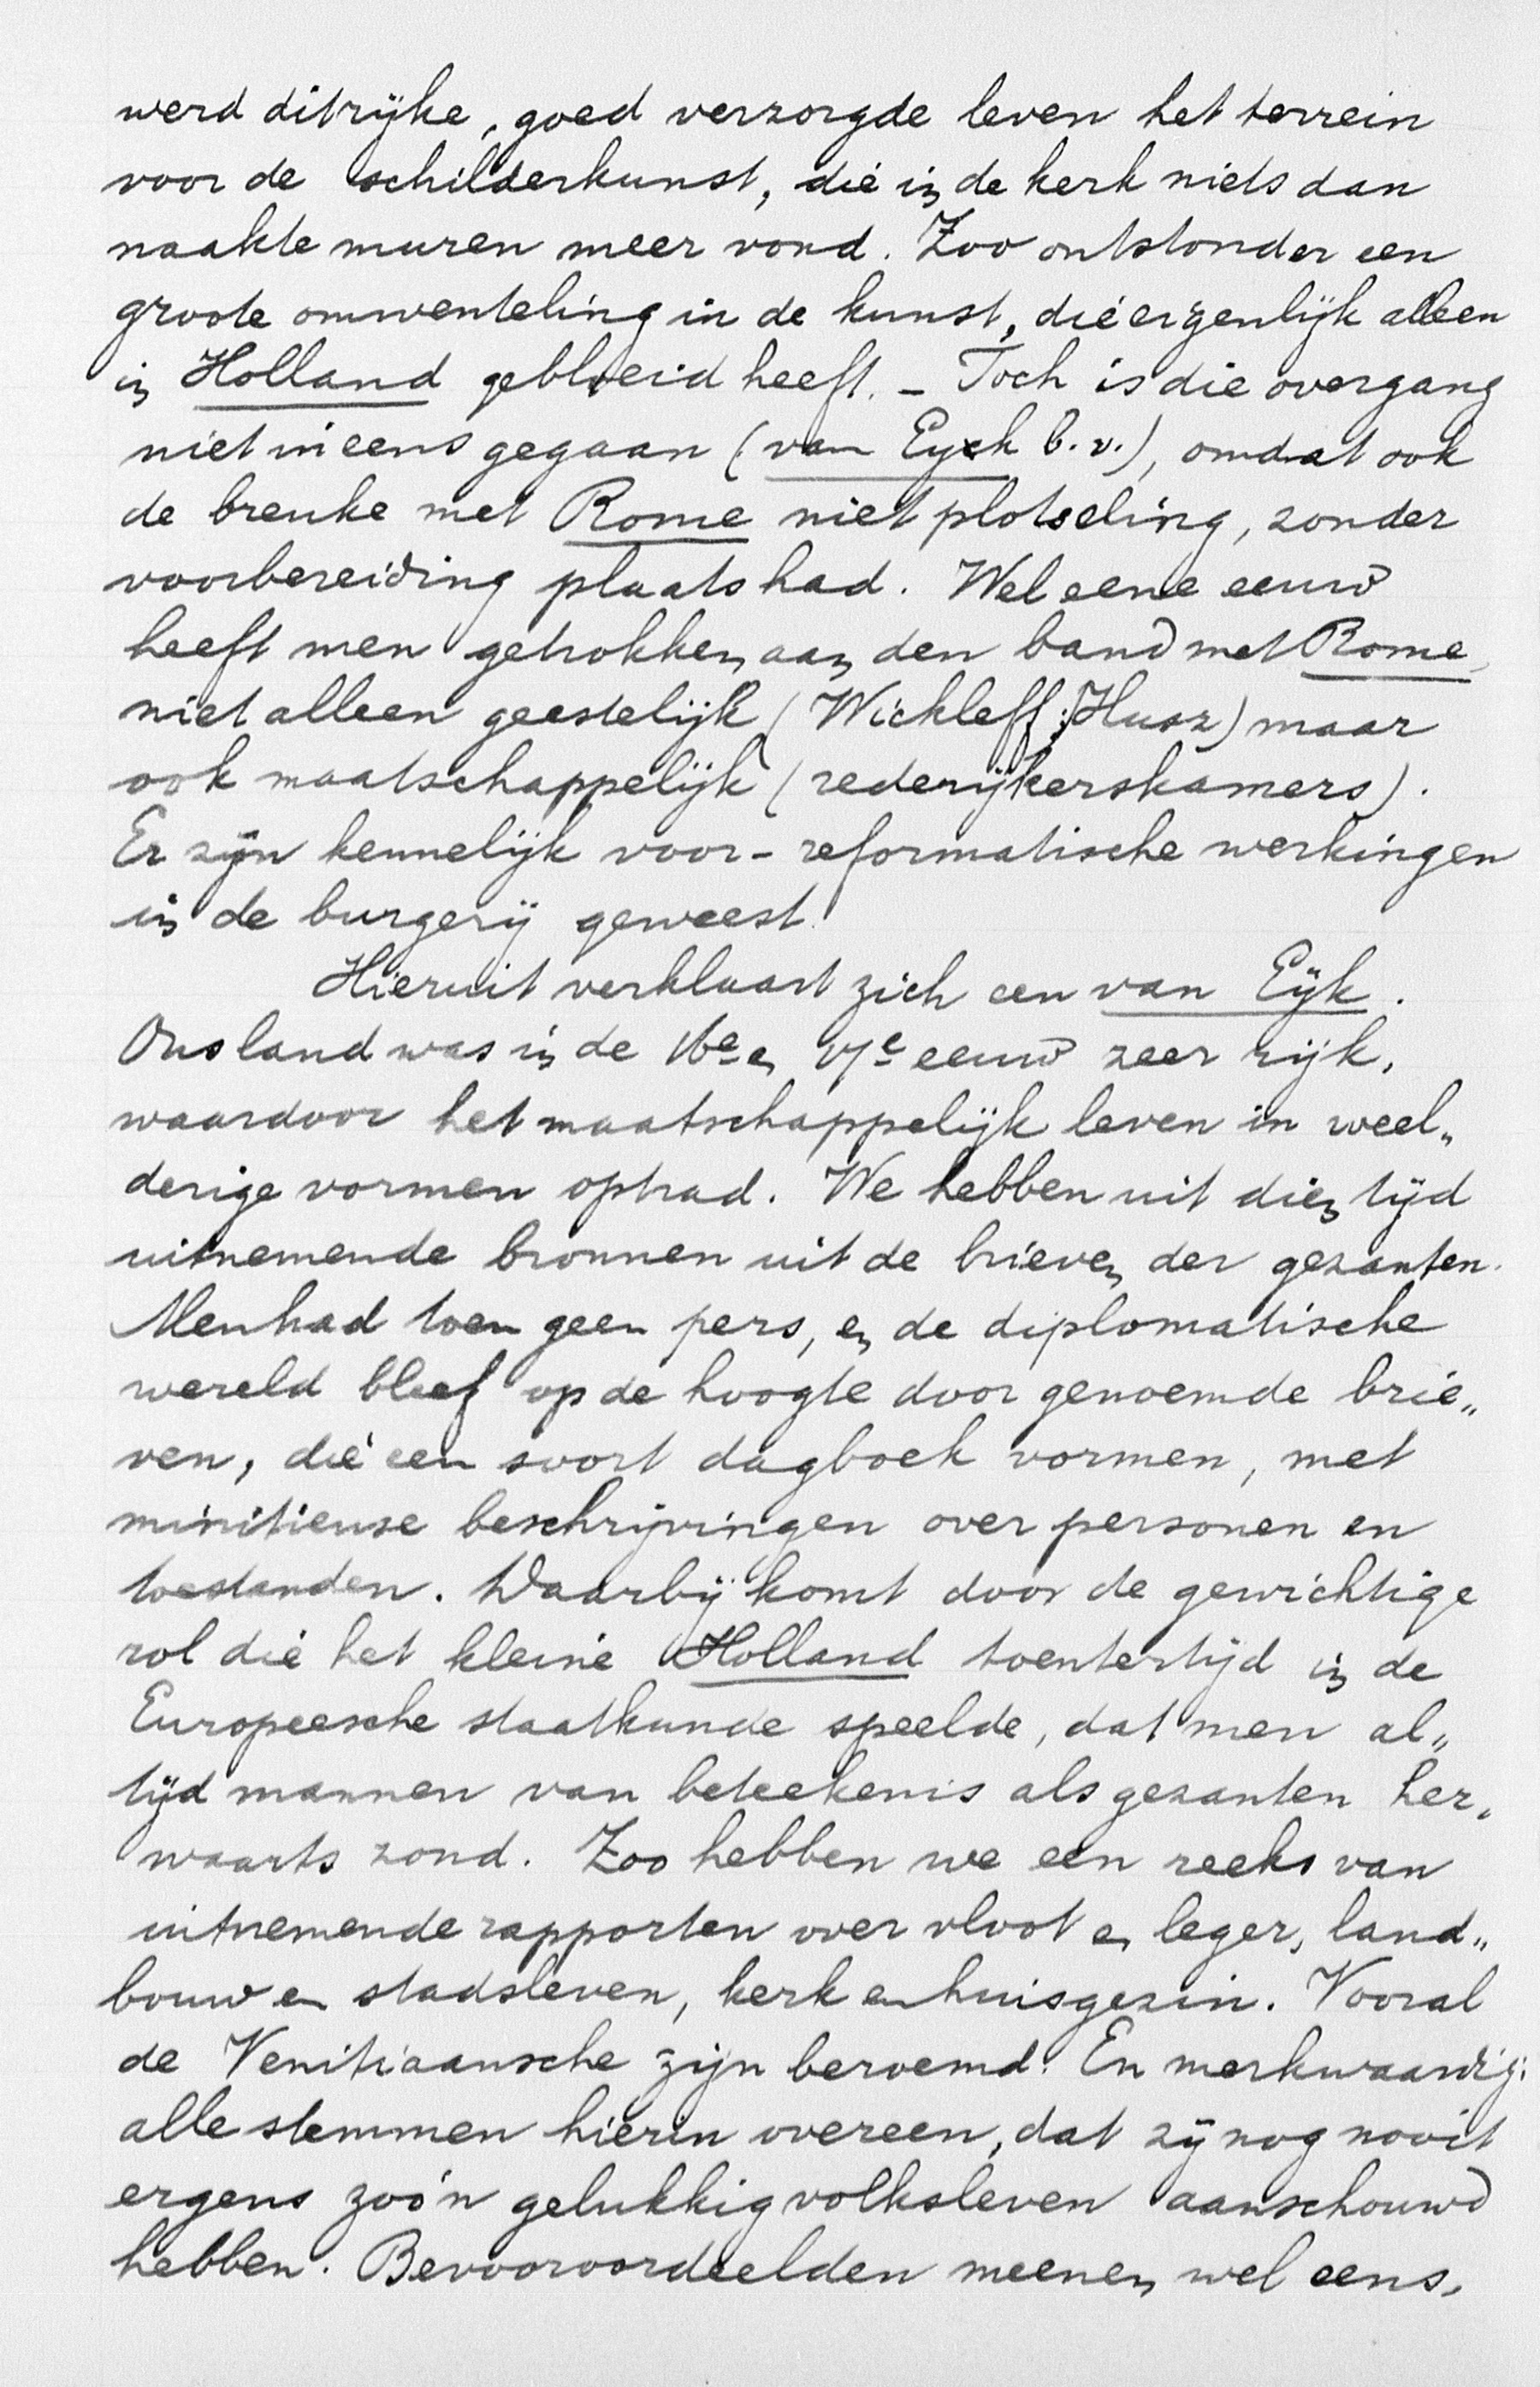 werd dit rijke, goed verzorgde leven het terrein
voor de schilderkunst, die in de kerk niets dan
naakte muren meer vond. Zoo ontstond er een
groote omwenteling in de kunst, die eigenlijk alleen
in Holland gebloeid heeft. – Toch is die overgang
niet ineens gegaan (van Eyck b.v.), omdat ook
de breuke met Rome niet plotseling, zonder
voorbereiding plaats had. Wel eene eeuw
heeft men getrokken aan den band met Rome,
niet alleen geestelijk (Wickleff; Husz) maar
ook maatschappelijk (rederijkerskamers).
Er zijn kennelijk voor-reformatische werkingen
in de burgerij geweest.
Hieruit verklaart zich een van Eijk.
Ons land was in de 16e en 17e eeuw zeer rijk,
waardoor het maatschappelijk leven in weel„
derige vormen optrad. We hebben uit dien tijd
uitnemende bronnen uit de brieven der gezanten.
Men had toen geen pers, en de diplomatische
wereld bleef op de hoogte door genoemde brie„
ven, die een soort dagboek vormen, met
minitieuse beschrijvingen over personen en
toestanden. Daarbij komt door de gewichtige
rol die het kleine Holland toentertijd in de
Europeesche staatkunde speelde, dat men al„
tijd mannen van beteekenis als gezanten her„
waarts zond. Zoo hebben we een reeks van
uitnemende rapporten over vloot en leger, land„
bouw en stadsleven, kerk en huisgezin. Vooral
de Venitiaansche zijn beroemd. En merkwaardig:
alle stemmen hierin overeen, dat zij nog nooit
ergens zoo'n gelukkig volksleven aanschouwd
hebben. Bevooroordeelden meenen wel eens,